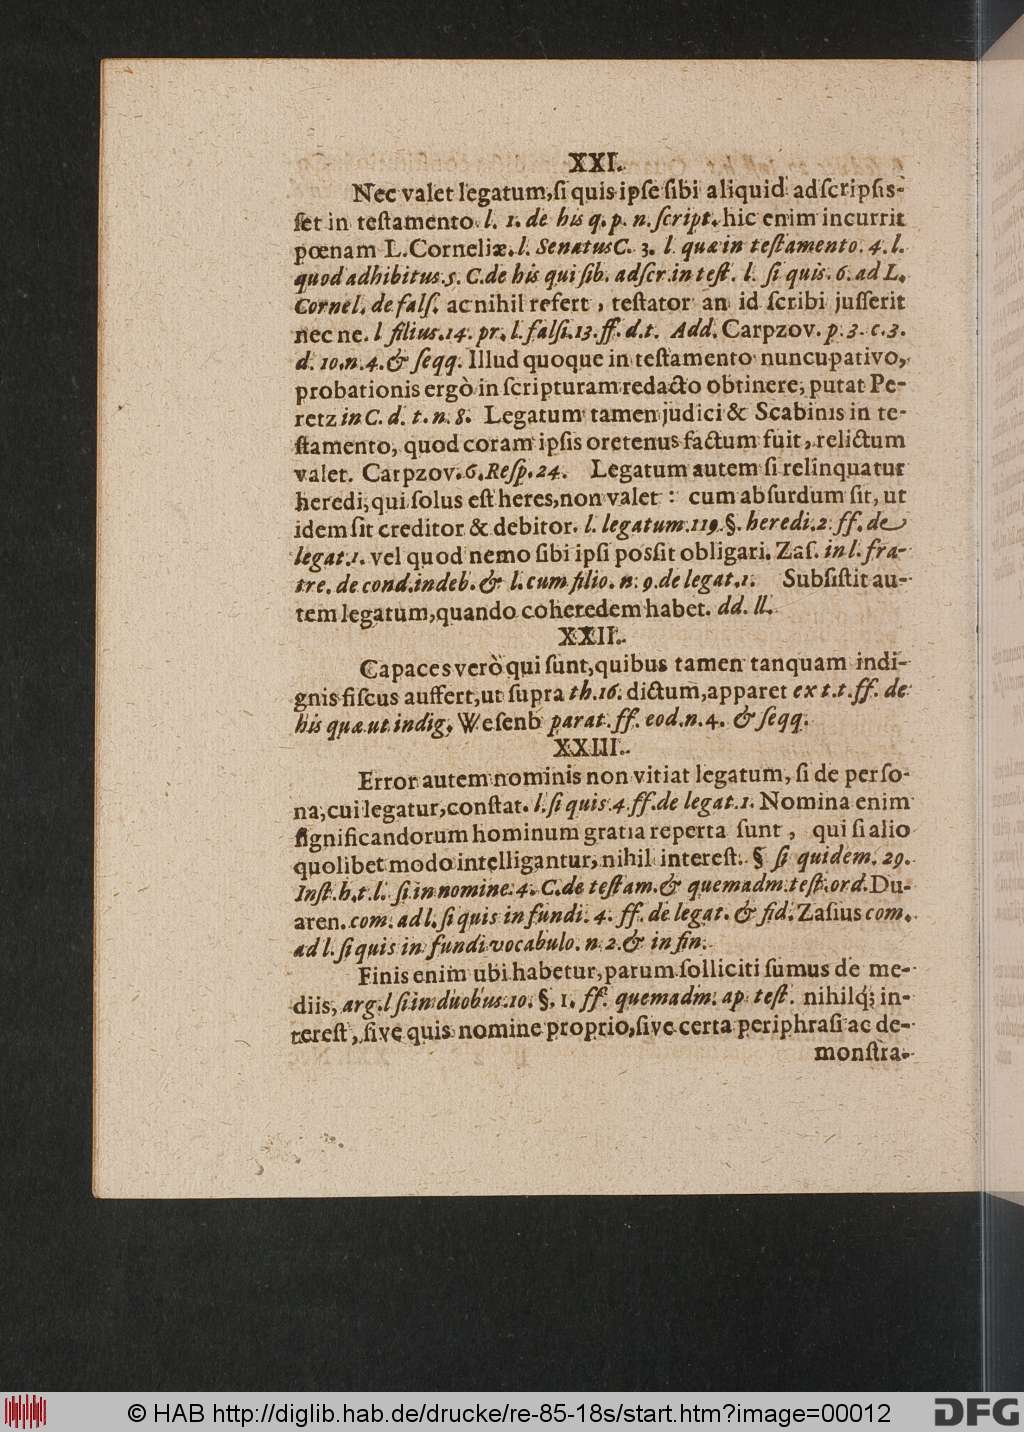 XXI.
Nec valet legatum, ſi quis ipſe ſibi aliquid adſcripſiſ-
ſet in teſtamento. l. 1. de his q. p. n. ſcript. hic enim incurrit
pœnam L. Corneliæ. l. Senatus C. 3. l quæ in teſtamento. 4. l.
quod adhibitus. 5. C. de his qui ſib. adſcr. in teſt. l. ſi quis. 6. ad L.
Cornel. de falſ. ac nihil refert, teſtator an id ſcribi juſſerit
nec ne. l filius. 14. pr. l. falſi. 13. ff. d. t. Add. Carpzov. p. 3. c. 3.
d. 10. n. 4. & ſeqq. Illud quoque in teſtamento nuncupativo,
probationis ergò in ſcripturam redacto obtinere, putat Pe-
retz in C. d. t. n. 8. Legatum tamen judici & Scabinis in te-
ſtamento, quod coram ipſis oretenus factum fuit, relictum
valet. Carpzov. 6. Reſp. 24. Legatum autem ſi relinquatur
heredi, qui ſolus eſt heres, non valet: cum abſurdum ſit, ut
idem ſit creditor & debitor. l. legatum. 119. §. heredi. 2. ff. de
legat. 1. vel quod nemo ſibi ipſi poſſit obligari. Zaſ. in l. fra-
tre. de cond. indeb. & l. cum filio. n. 9. de legat. 1. Subſiſtit au-
tem legatum, quando coheredem habet. dd. ll.
XXII.
Capaces verò qui ſunt, quibus tamen tanquam indi-
gnis fiſcus auffert, ut ſupra th. 16. dictum, apparet ex t. t. ff. de
his quæ ut indig. Weſenb parat. ff. eod. n. 4. & ſeqq.
XXIII.
Error autem nominis non vitiat legatum, ſi de perſo-
na, cui legatur, conſtat. l. ſi quis. 4. ff. de legat. 1. Nomina enim
ſignificandorum hominum gratia reperta ſunt, qui ſi alio
quolibet modo intelligantur, nihil intereſt. § ſi quidem. 29.
Inſt. h. t. l. ſi in nomine. 4. C. de teſtam. & quemadm. teſt. ord. Du-
aren. com. ad l. ſi quis in fundi. 4. ff. de legat. & fid. Zaſius com.
ad l. ſi quis in fundi vocabulo. n. 2. & in fin.
Finis enim ubi habetur, parum ſolliciti ſumus de me-
diis, arg. l ſi in duobus. 10. §. 1. ff. quemadm. ap. teſt. nihilq; in-
tereſt, ſive quis nomine proprio, ſive certa periphraſi ac de-
monſtra-
© HAB http://diglib.hab.de/drucke/re-85-18s/start.htm?image=00012
DFG